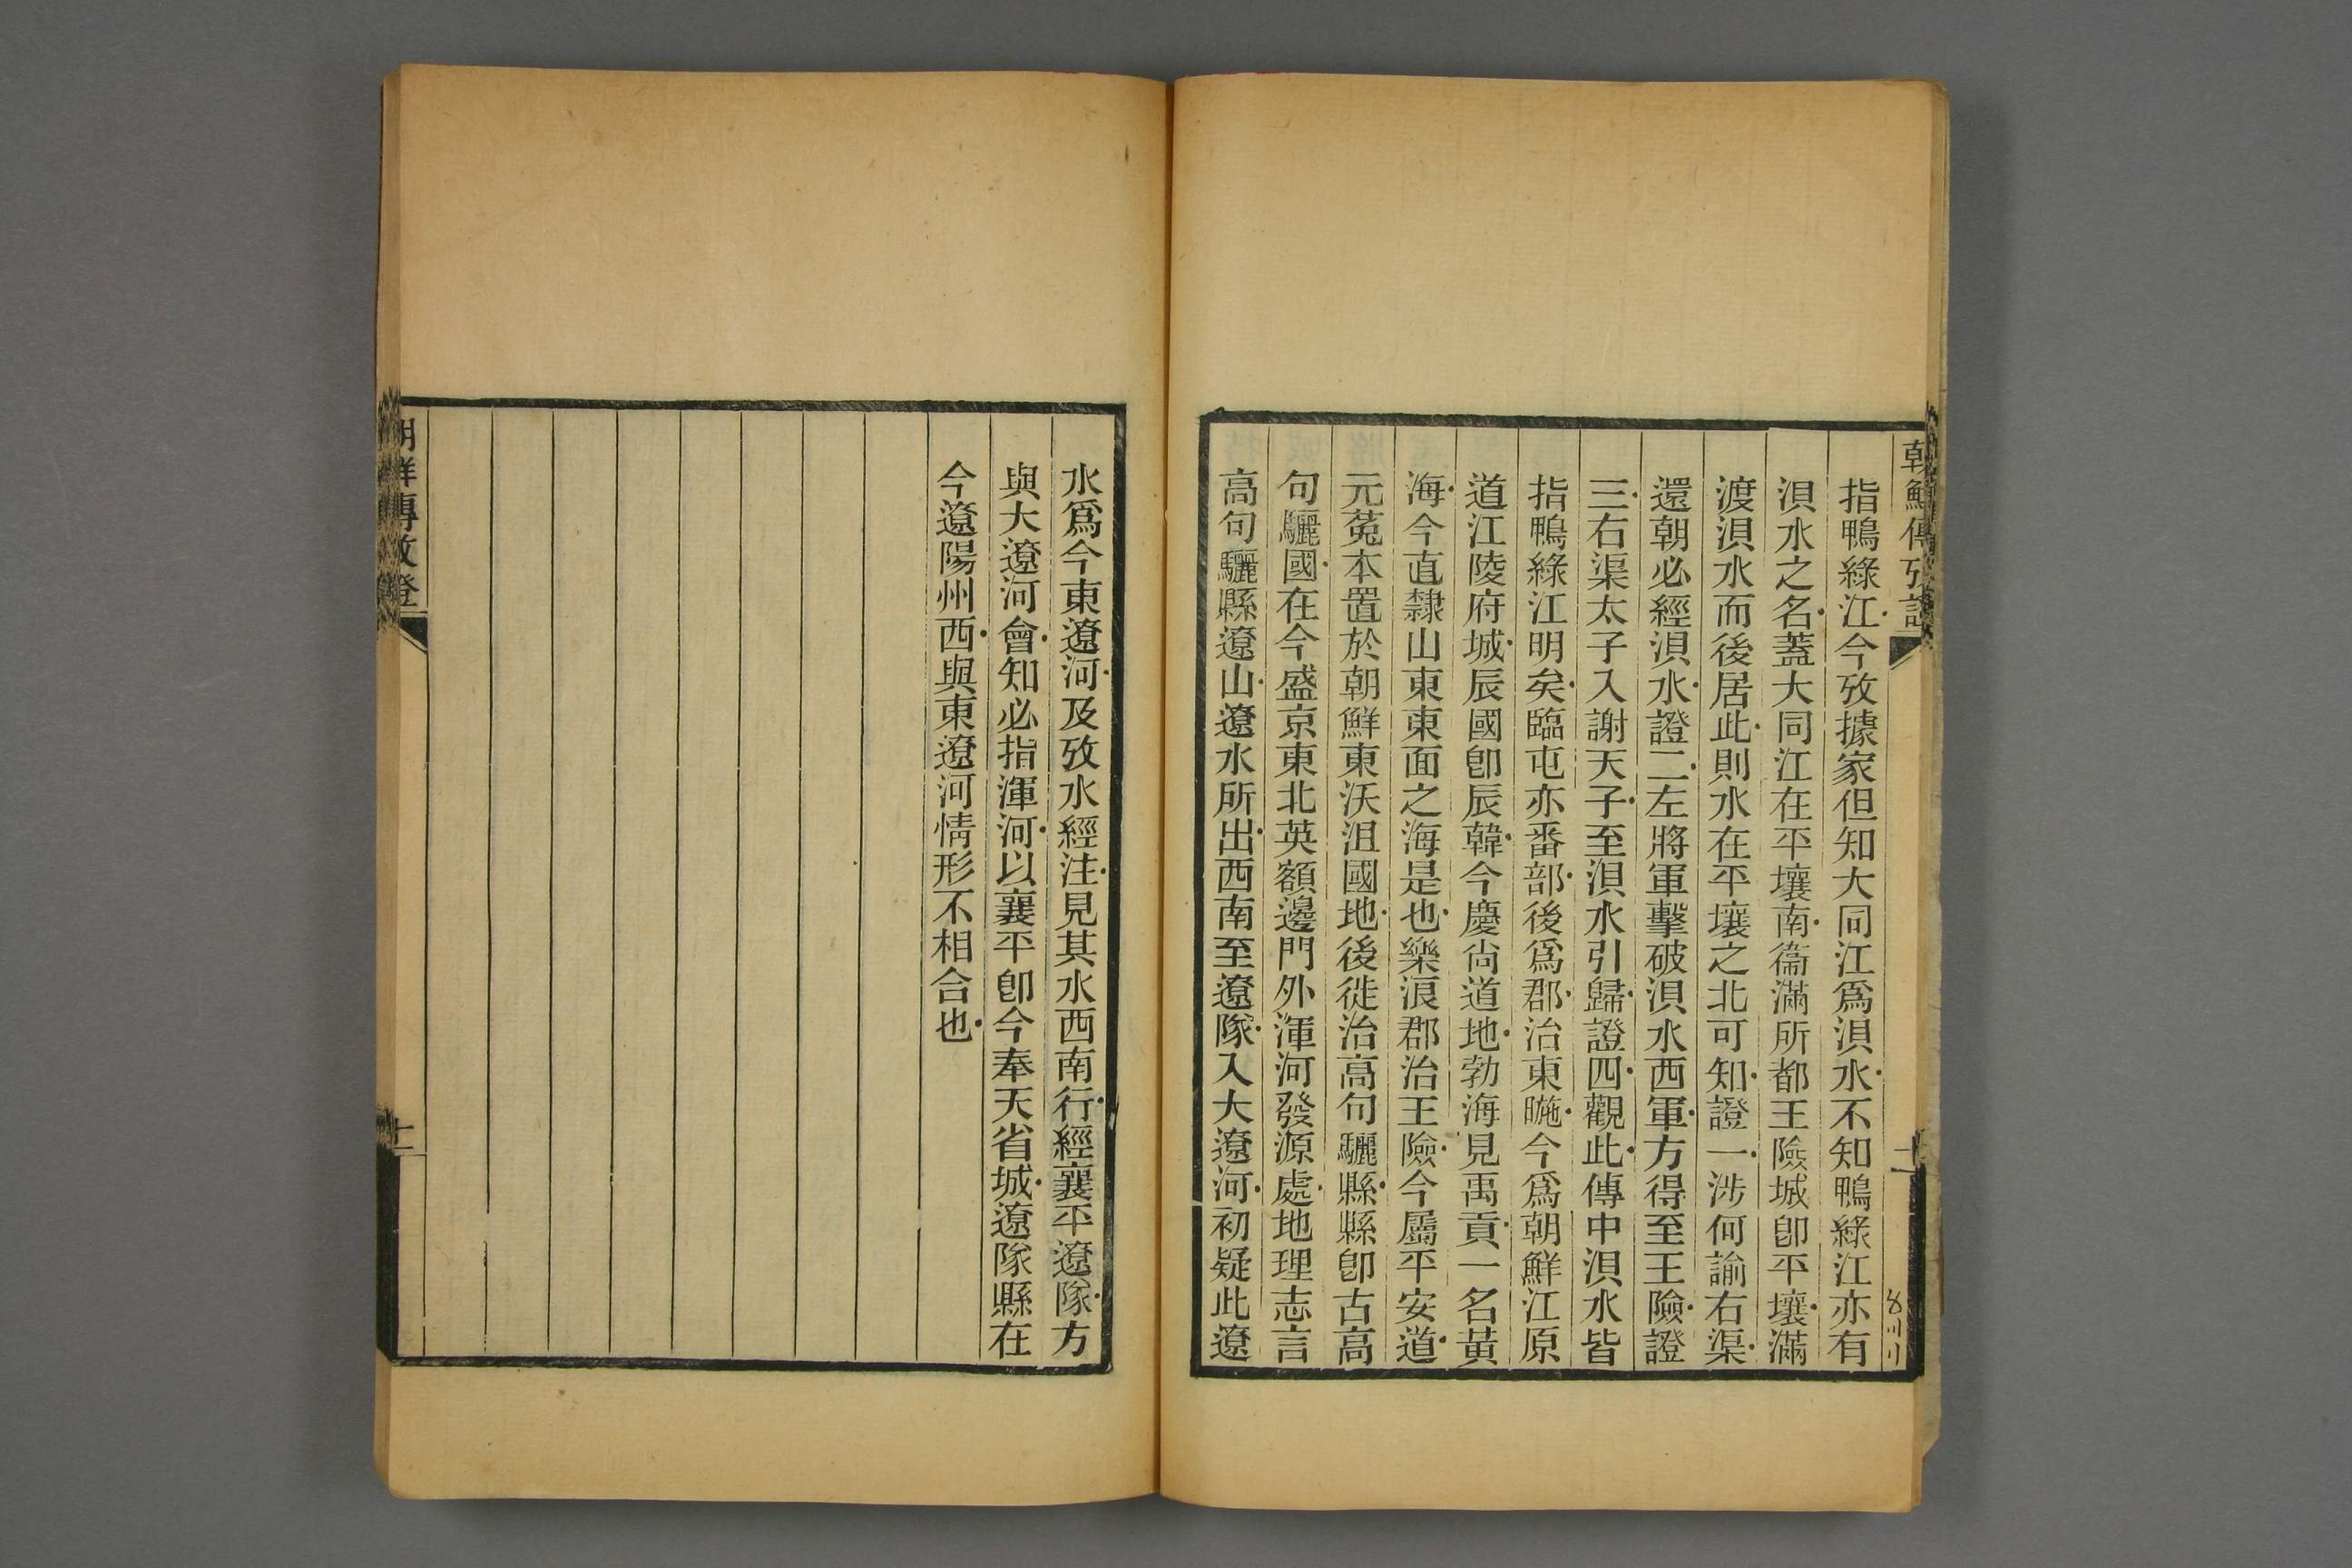 朝鮮傳攷證
指鴨綠江今攷據家但知大同江爲浿水不知鴨綠江亦有
浿水之名蓋大同江在平壤南衞滿所都王險城卽平壤滿
渡浿水而後居此則水在平壤之北可知證一涉何諭右渠
還朝必經浿水證二左將軍擊破浿水西軍方得至王險證
三右渠太子入謝天子至浿水引歸證四觀此傳中浿水皆
指鴨綠江明矣臨屯亦番部後爲郡治東暆今爲朝鮮江原
道江陵府城辰國卽辰韓今慶尙道地勃海見禹貢一名黃
海今直隸山東東面之海是也樂浪郡治王險今屬平安道
元菟本置於朝鮮東沃沮國地後徙治高句驪縣縣卽古高
句驪國在今盛京東北英額邊門外渾河發源處地理志言
高句驪縣遼山遼水所出西南至遼隊入大遼河初疑此遼
水爲今東遼河及攷水經注見其水西南行經襄平遼隊方
與大遼河會知必指渾河以襄平卽今奉天省城遼隊縣在
今遼陽州西與東遼河情形不相合也
朝鮮傳攷證